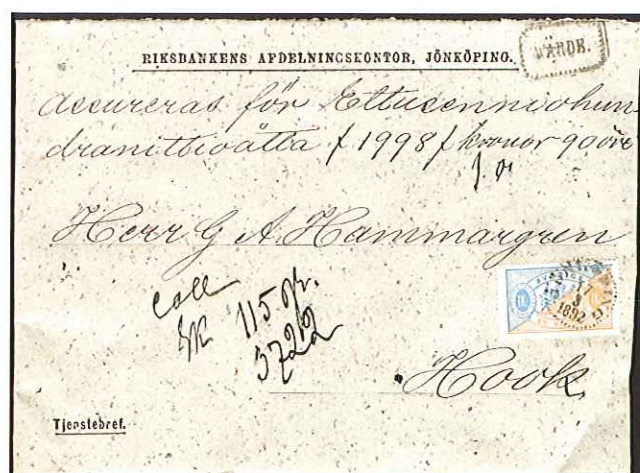 RIKSBANKENS AFDELNINGSKONTOR, JÖNKÖPING.
WÄRDE.
Assureras för Ettusenniohun-
dranittioåtta / 1998 / kronor 90 öre
Herr G A. Hammargren
115 gr.
3722
1892
Hook
Tjenstebref.